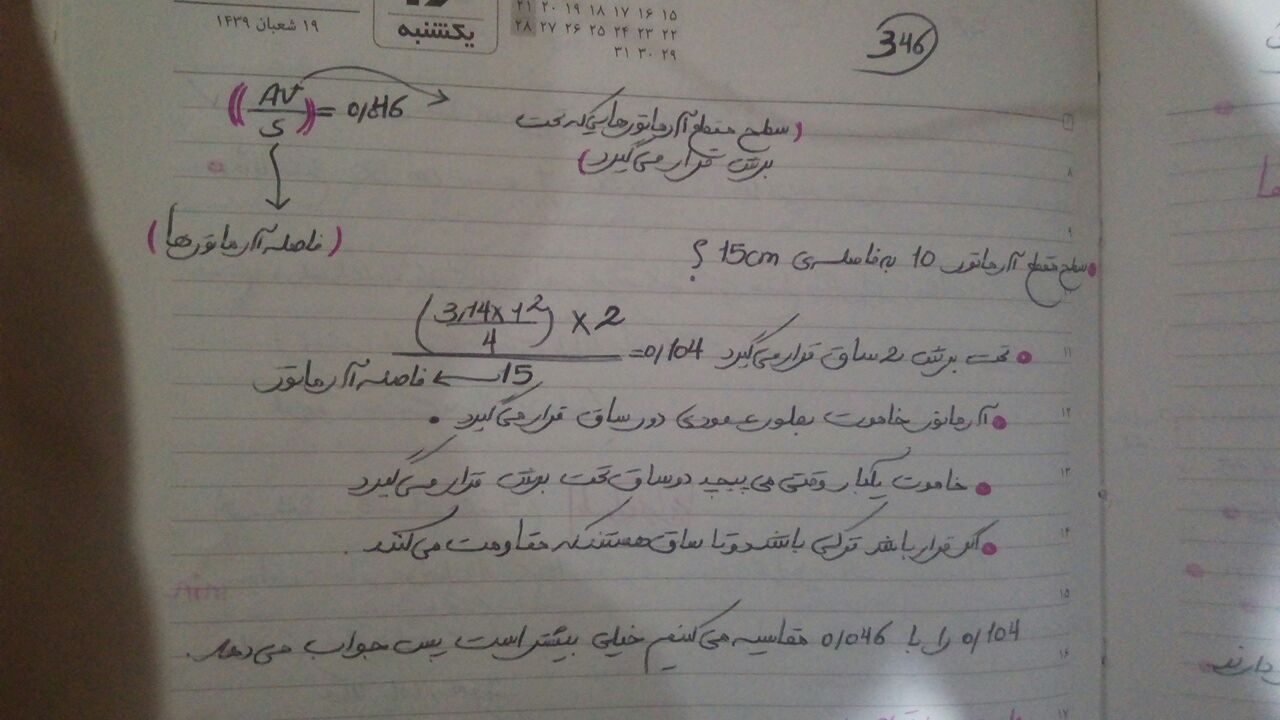 ۱۹ شعبان ۱۴۳۹
یکشنبه
۱۵ ۱۶ ۱۷ ۱۸ ۱۹ ۲۰ ۲۱
۲۲ ۲۳ ۲۴ ۲۵ ۲۶ ۲۷ ۲۸
۲۹ ۳۰ ۳۱
346
((AV/S)) = 0,046
(سطح مقطع آرماتورهایی که تحت
برش قرار می‌گیرد)
۸
(فاصله آرماتورها)
۹
سطح مقطع آرماتور 10 به فاصله‌ی 15cm ؟
(3,14×1²/4) × 2
تحت برش 2 ساق قرار می‌گیرد 0,104=
15 ← فاصله آرماتور
۱۱
آرماتور خاموت بطور عمودی دور ساق قرار می‌گیرد.
۱۲
خاموت یکبار وقتی می‌پیچد دو ساق تحت برش قرار می‌گیرد
۱۳
اگر قرار باشد ترکی باشد دو تا ساق هستند که مقاومت می‌کنند.
۱۴
۱۵
0,104 را با 0,046 مقایسه می‌کنیم خیلی بیشتر است پس جواب می‌دهد.
۱۶
۱۷